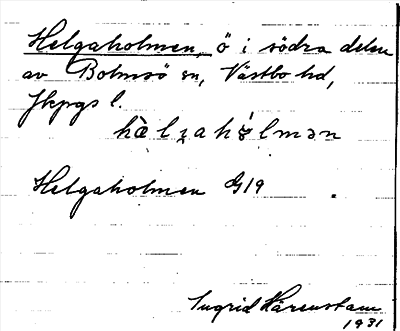 Helgaholmen, ö i södra delen
av Bolmsö sn, Västbo hd,
Jkpgs l.
hæ̀lgahɷ́lmən
Helgaholmen G19
Ingrid Härenstam
1931